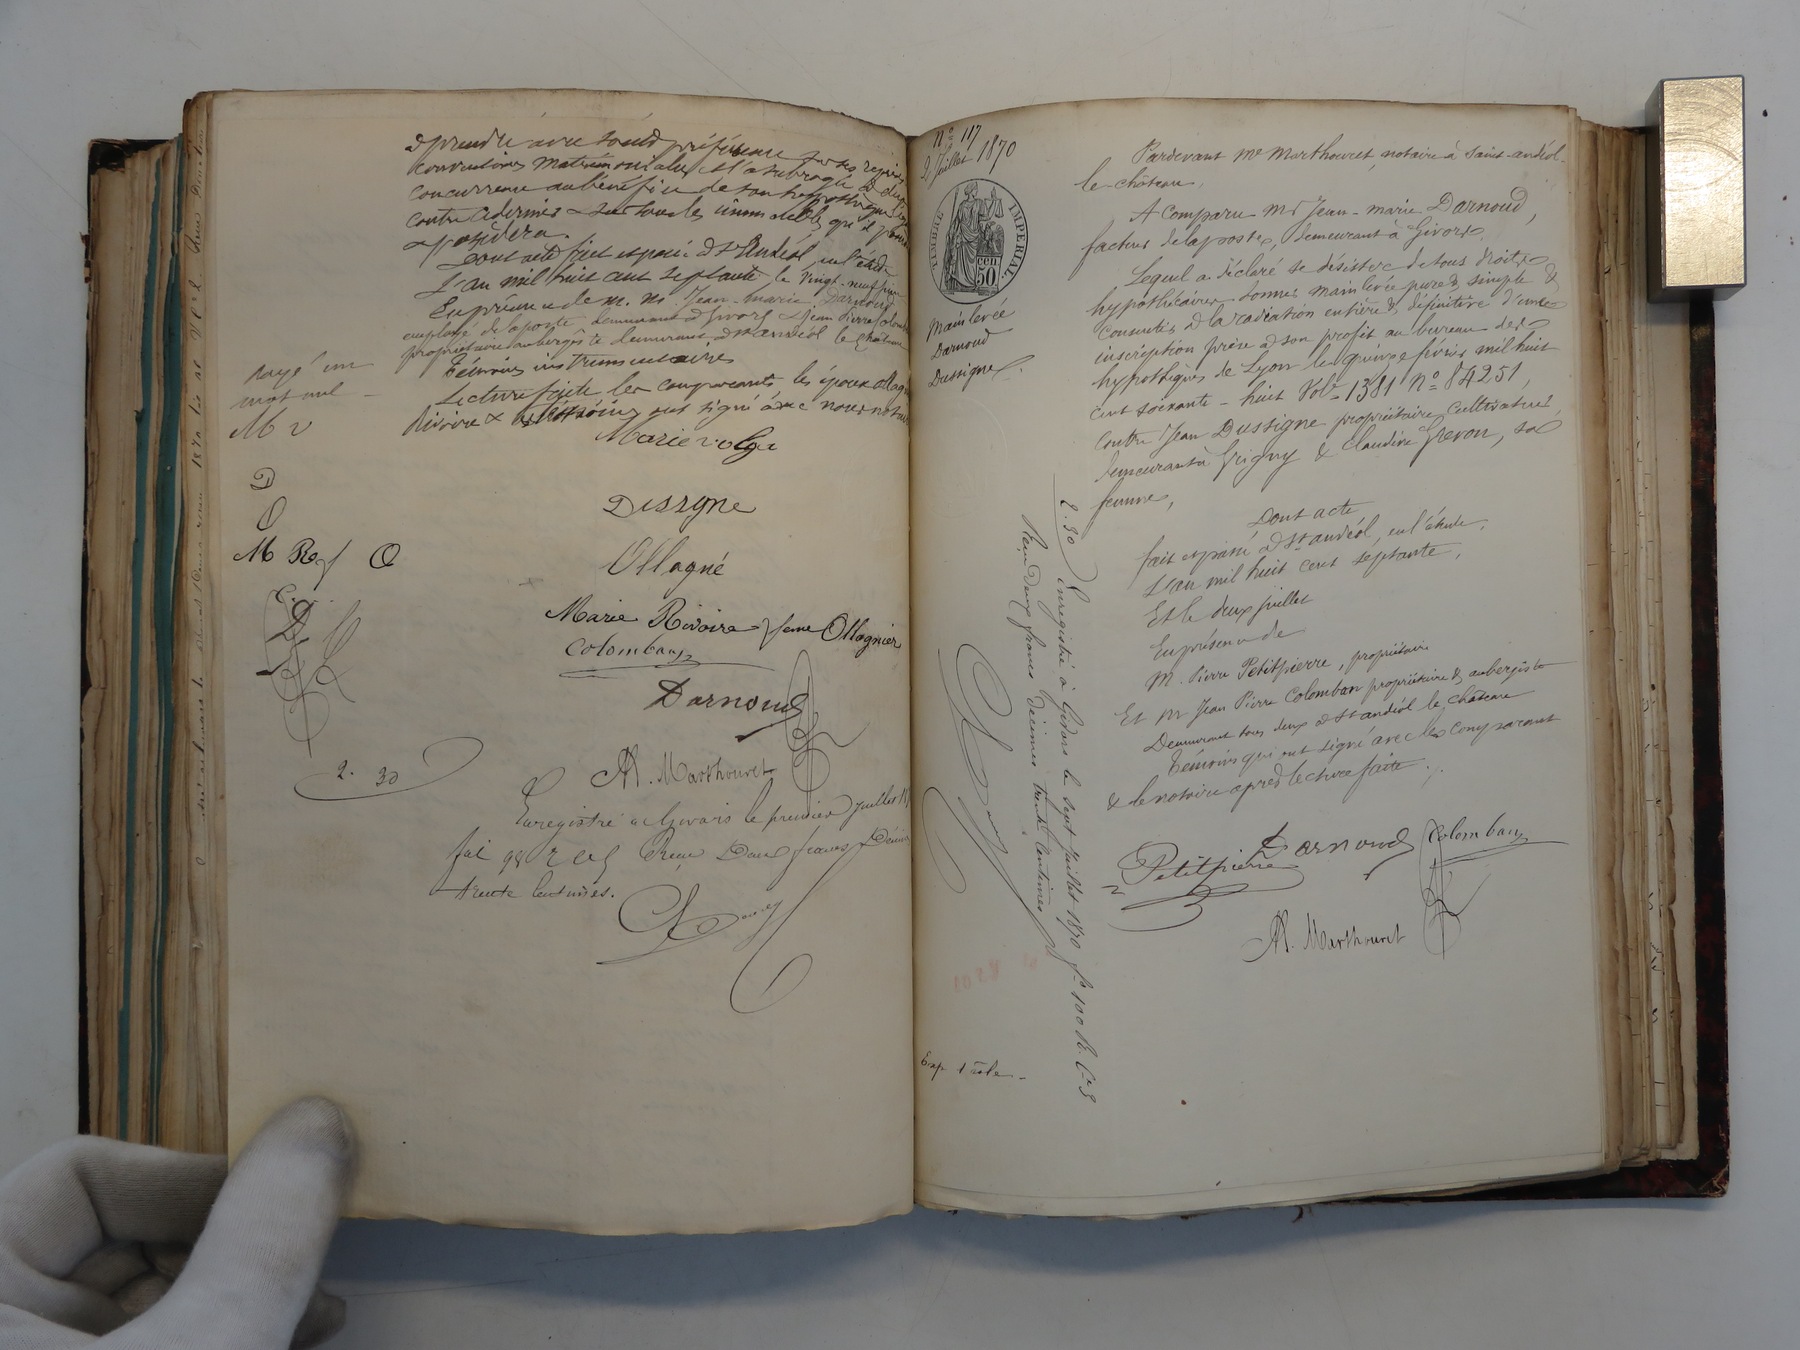 & prendre avec toute préférence sur ses reprises
conventions matrimoniales et l'a subrogé à due
concurrence au bénéfice de son hypothèque légale
contre ce dernier & sur tous les immeubles qu'il
& possèdera.
Dont acte fait et passé à St Andéol, en l'étude
L'an mil huit cent septante le vingt-neuf juin
En présence de M. Mr Jean-Marie Darnoud
employé de la poste demeurant à Givors & Jean Pierre Colomban
propriétaire aubergiste demeurant à St Andéol le Château
Témoins instrumentaires
Lecture faite les comparants les époux Ollagnier
Rivoire & les témoins ont signé avec nous notaire
rayé un
mot nul
M V
D
O
M R f O
C.
D
Marie Volga
Dissigne
Ollagné
Marie Rivoire femme Ollagnier
Colomban
Darnoud
M. Marthouret
2. 30
Enregistré à Givors le premier Juillet
fol 98 Reçu Deux francs Décimes
trente centimes.
No 117
2 Juillet 1870
TIMBRE IMPERIAL
50 cen
Mainlevée
Darnoud
Dussigne
Pardevant Me Marthouret, notaire à Saint-andéol-
le-château,
A Comparu Mr Jean-marie Darnoud,
facteur de la poste, demeurant à Givors,
Lequel a déclaré se désister de tous droits
hypothécaires, donner mainlevée pure & simple &
consentir à la radiation entière & définitive d'une
inscription prise à son profit au bureau des
hypothèques de Lyon le quinze février mil huit
cent soixante-huit Vol. 1381 No 84251,
contre Jean Dussigne propriétaire cultivateur,
demeurant à Grigny & Claudine Grevon, sa
femme,
Dont acte
fait et passé à St andéol, en l'étude,
L'an mil huit cent septante,
Et le deux juillet
En présence de
M. Pierre Petitpierre, propriétaire
Et Mr Jean Pierre Colomban propriétaire & aubergiste
Demeurant tous deux à St andéol le château
Témoins qui ont signé avec le comparant
& le notaire après lecture faite.
Petitpierre
Darnoud
Colomban
M. Marthouret
2. 30
Enregistré à Givors le sept juillet 1870 fo 100
Reçu deux francs décimes trente centimes
Exp 1 rôle